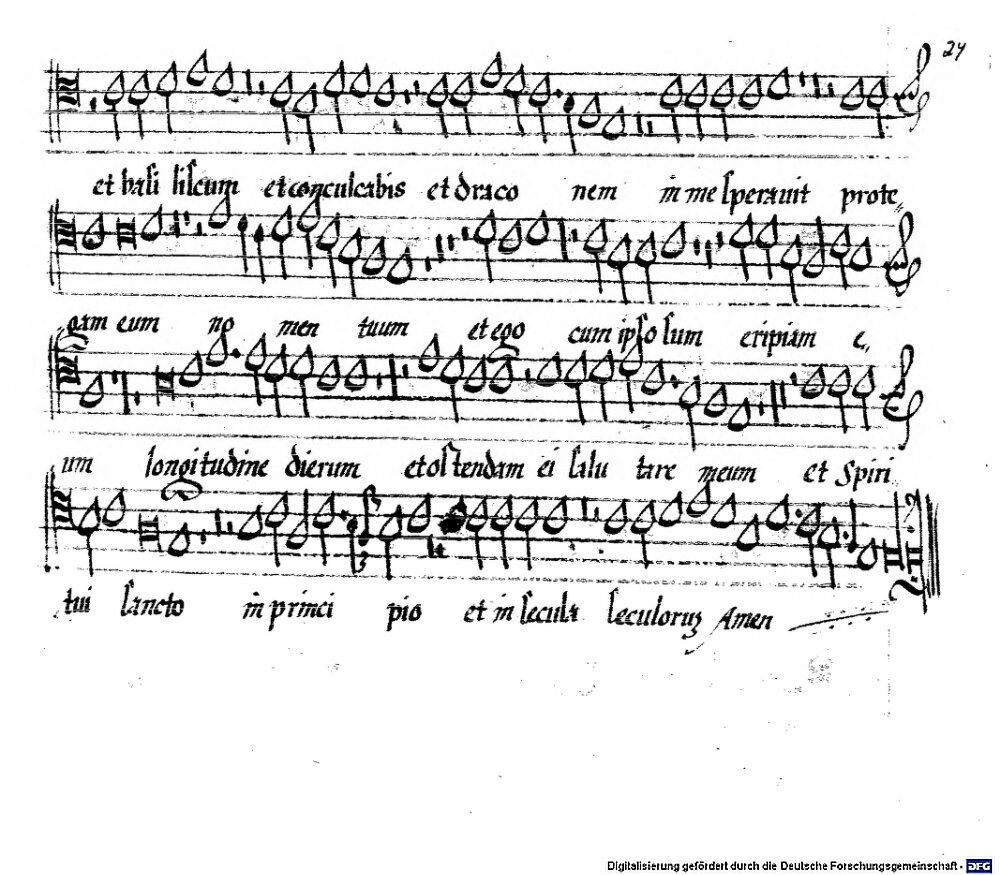 24
et basi liscum et conculcabis et draco nem in me speravit prote„
gam eum no men tuum et ego cum ipso sum eripiam e„
um longitudine dierum et ostendam ei salu tare meum et Spiri„
tui sancto in princi pio et in secula seculorum Amen
Digitalisierung gefördert durch die Deutsche Forschungsgemeinschaft - DFG